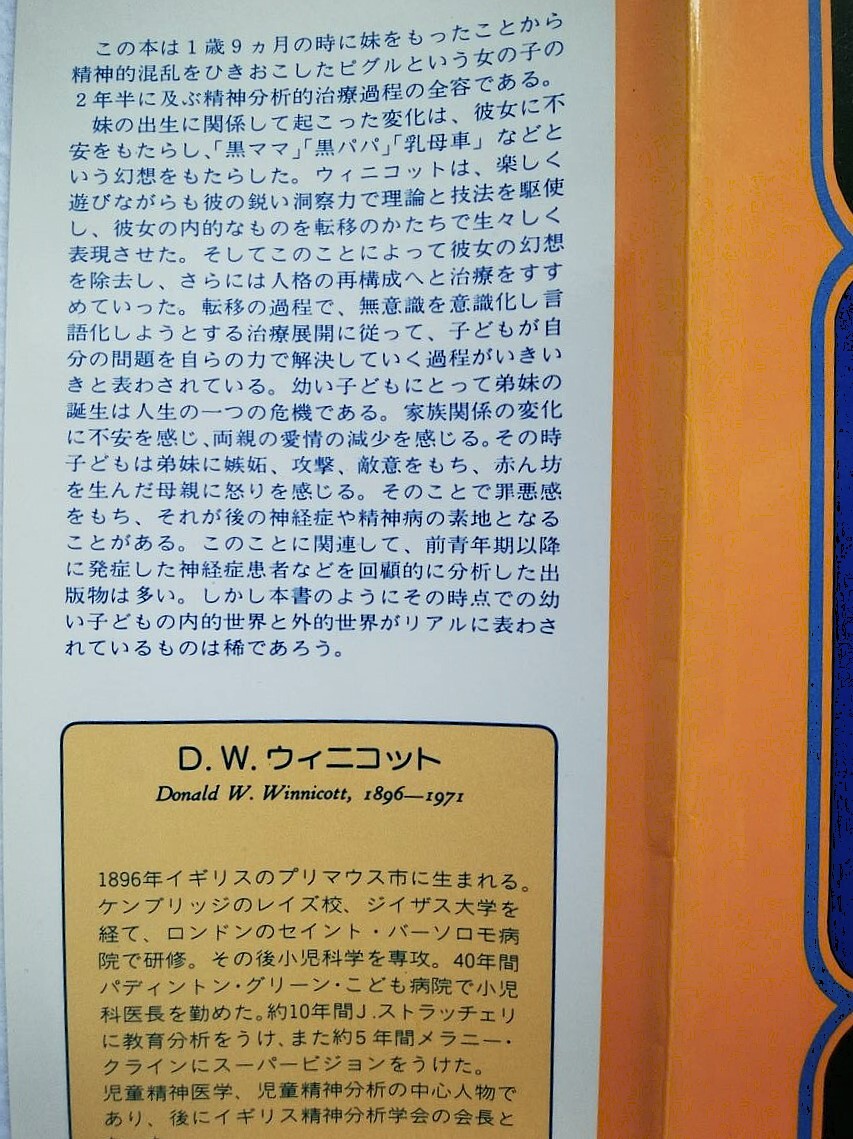 この本は1歳9ヵ月の時に妹をもったことから
精神的混乱をひきおこしたピグルという女の子の
2年半に及ぶ精神分析的治療過程の全容である。
妹の出生に関係して起こった変化は、彼女に不
安をもたらし、「黒ママ」「黒パパ」「乳母車」などと
いう幻想をもたらした。ウィニコットは、楽しく
遊びながらも彼の鋭い洞察力で理論と技法を駆使
し、彼女の内的なものを転移のかたちで生々しく
表現させた。そしてこのことによって彼女の幻想
を除去し、さらには人格の再構成へと治療をすす
めていった。転移の過程で、無意識を意識化し言
語化しようとする治療展開に従って、子どもが自
分の問題を自らの力で解決していく過程がいきい
きと表わされている。幼い子どもにとって弟妹の
誕生は人生の一つの危機である。家族関係の変化
に不安を感じ、両親の愛情の減少を感じる。その時
子どもは弟妹に嫉妬、攻撃、敵意をもち、赤ん坊
を生んだ母親に怒りを感じる。そのことで罪悪感
をもち、それが後の神経症や精神病の素地となる
ことがある。このことに関連して、前青年期以降
に発症した神経症患者などを回顧的に分析した出
版物は多い。しかし本書のようにその時点での幼
い子どもの内的世界と外的世界がリアルに表わさ
れているものは稀であろう。
D.W.ウィニコット
Donald W. Winnicott, 1896—1971
1896年イギリスのプリマウス市に生まれる。
ケンブリッジのレイズ校、ジイザス大学を
経て、ロンドンのセイント・バーソロモ病
院で研修。その後小児科学を専攻。40年間
パディントン・グリーン・こども病院で小児
科医長を勤めた。約10年間J.ストラッチェリ
に教育分析をうけ、また約5年間メラニー・
クラインにスーパービジョンをうけた。
児童精神医学、児童精神分析の中心人物で
あり、後にイギリス精神分析学会の会長と